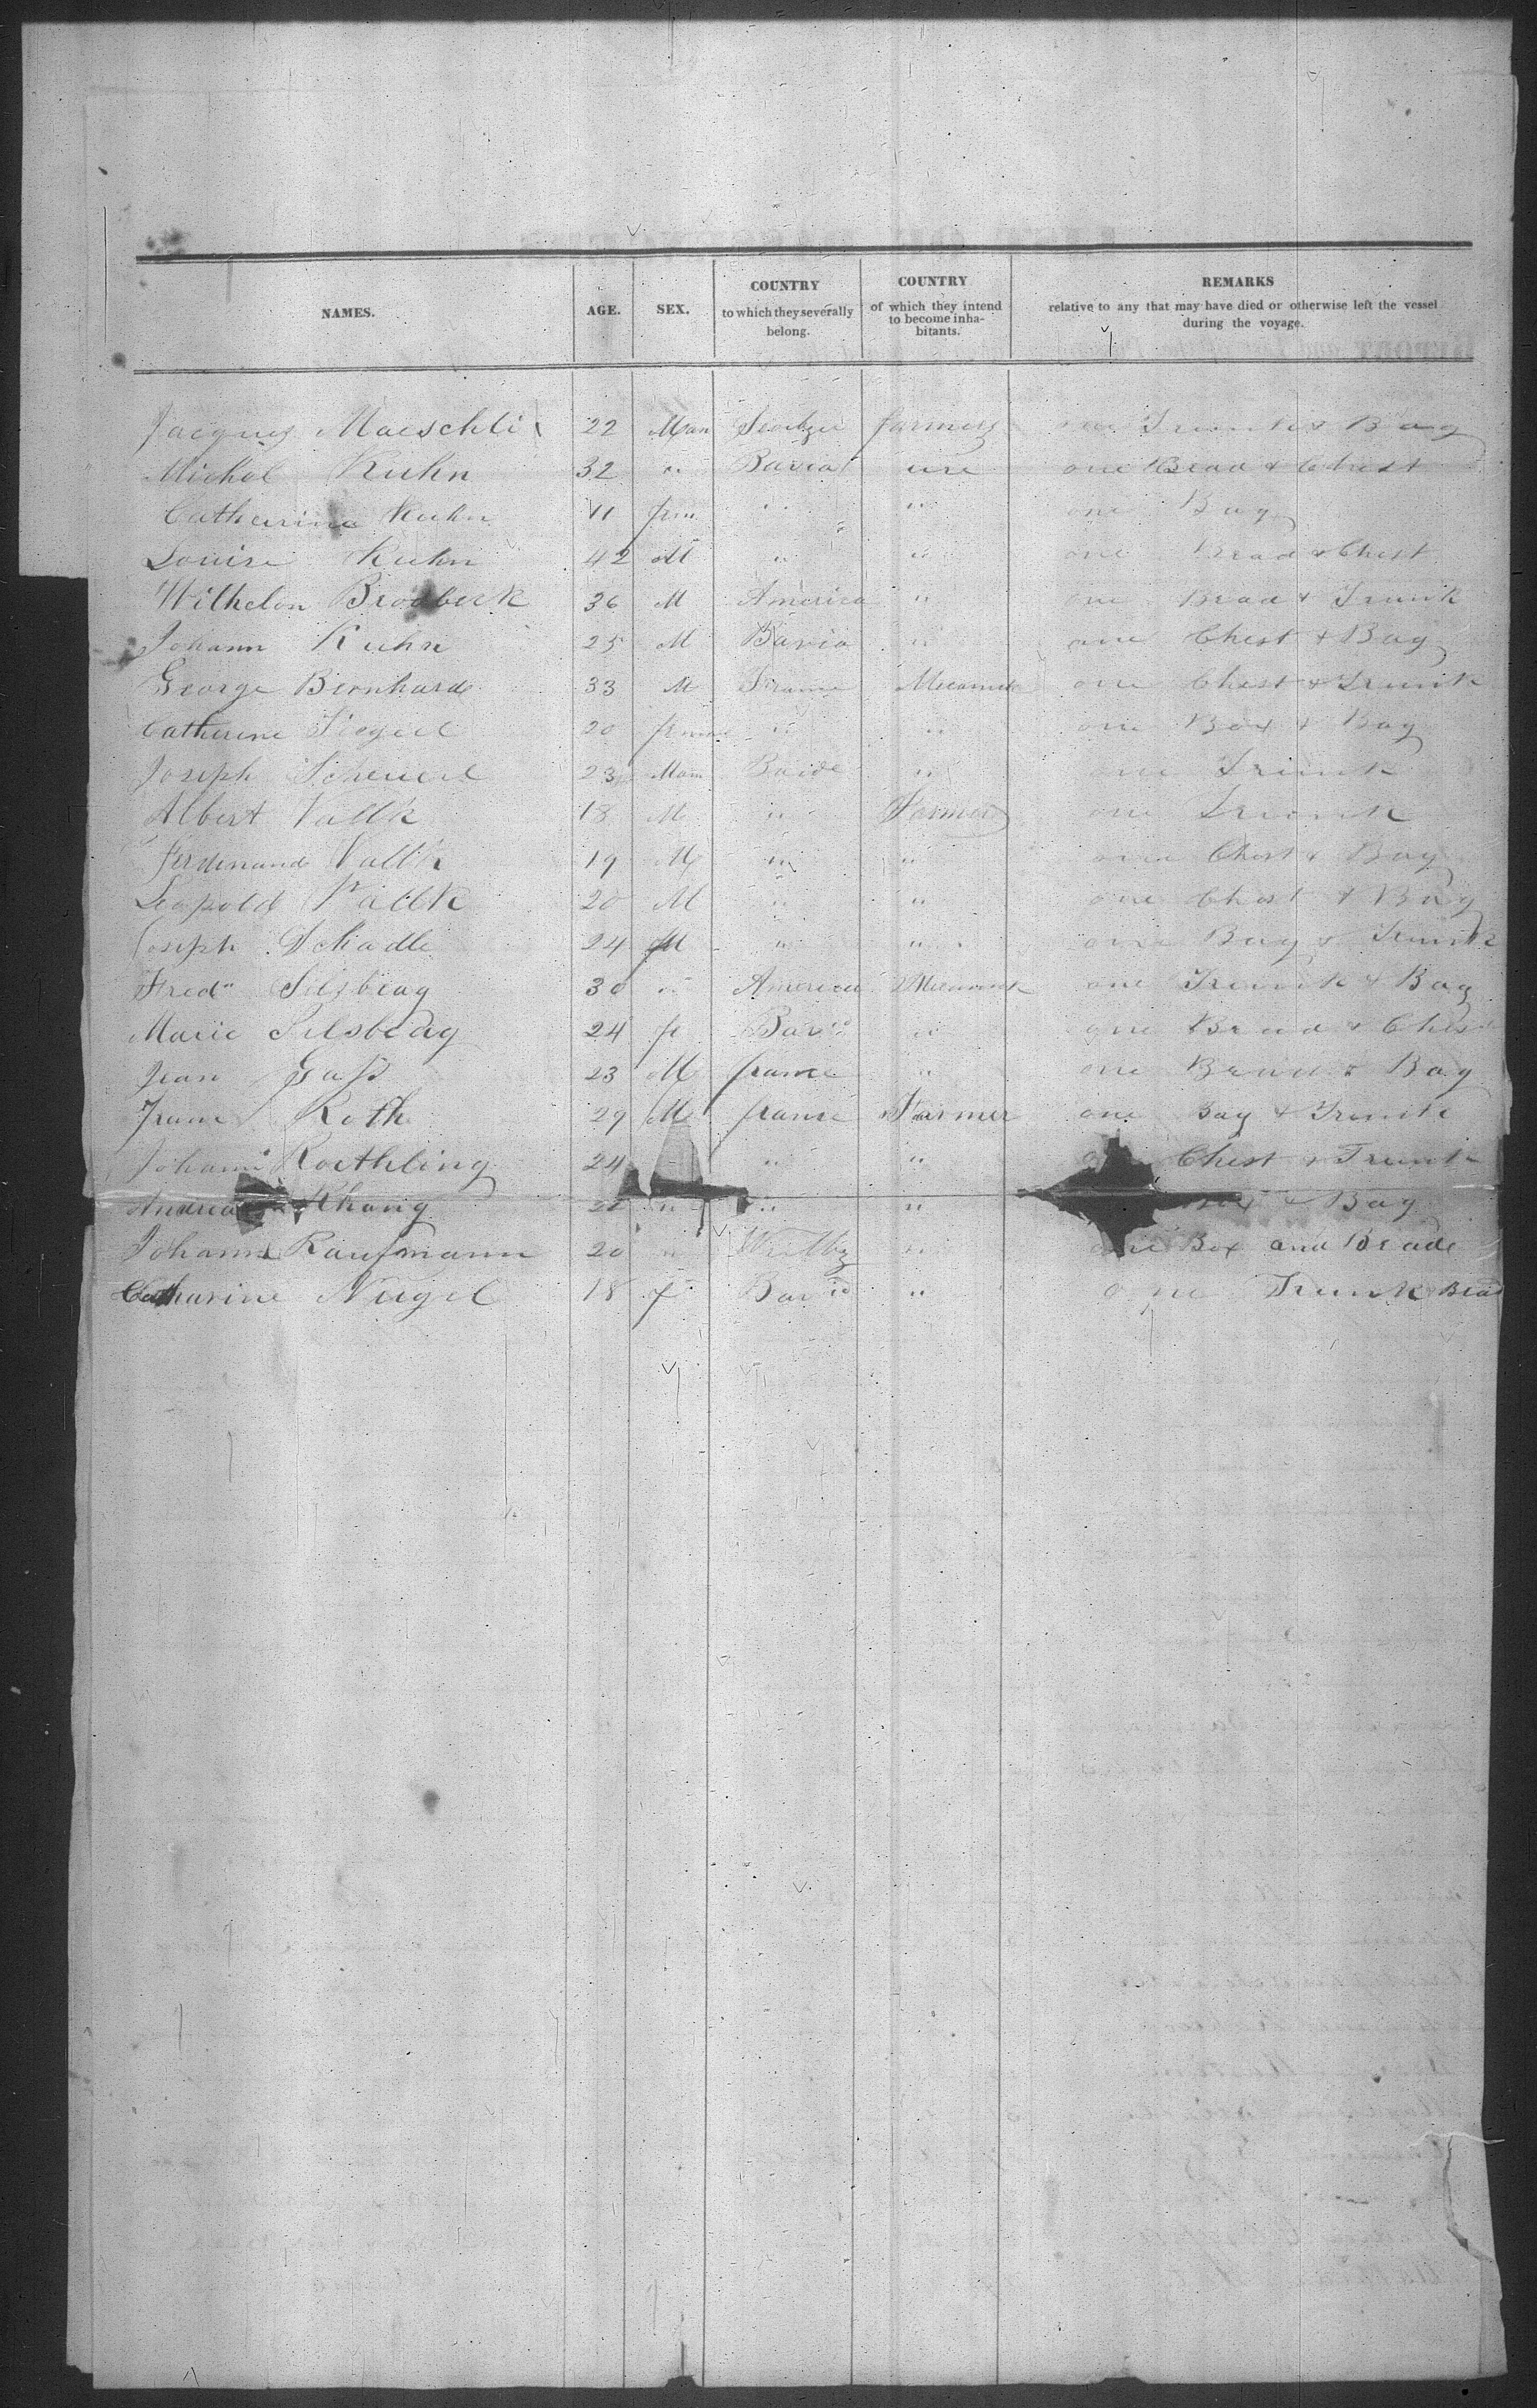 NAMES. AGE. SEX. COUNTRY to which they severally belong. COUNTRY of which they intend to become inhabitants. REMARKS relative to any that may have died or otherwise left the vessel during the voyage.
Jacques Maeschli 22 Man farmer one Trunk & Bag
Michel Kuhn 32 " Bavia one Chest
Catharina Kuhn 11 fem " " one Bag
Louise Kuhn 42 M " " one Chest
Wilhelm Brodbeck 36 M America " one Trunk
Johann Kuhn 25 M Bavia " one Chest & Bag
George Bernhard 33 M France one Chest & Trunk
Catherine 20 " " one Box & Bag
Joseph Scheuerl 23 Man " one Trunk
Albert Vallk 18 M " Farmer one Trunk
Ferdinand Vallk 19 M " " one Chest & Bag
Leopold Vallk 20 M " " one Chest & Bag
Joseph Schadle 24 M " " one Bag & Trunk
Fred Silsbeag 30 " America one Trunk & Bag
Marie Silsbeag 24 f Bavia " one
Jean Gaß 23 M france " one & Bag
Roth 29 M france Farmer one Bag & Trunk
Johann Roethling 24 " " Chest & Trunk
Andrea Khong " " " & Bag
Johann Kaufmann 20 " " one Box and Brade
Catharine Nugel 18 f Bavia " one Trunk